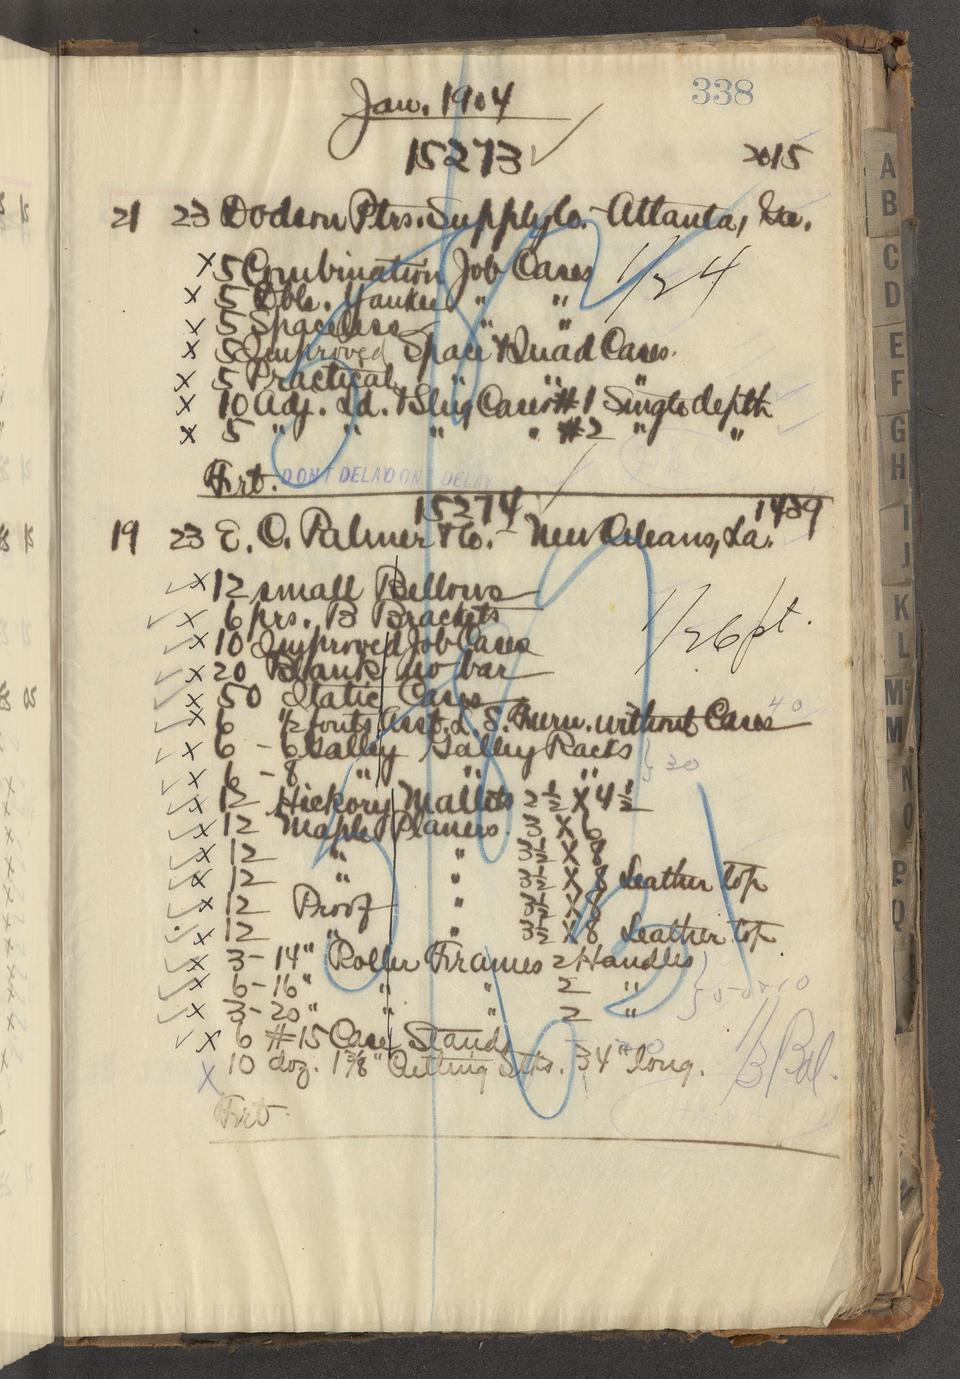 338
Jan. 1904
15273
2015
21 23 Dodson Ptrs. Supply Co. - Atlanta, Ga.
x 5 Combination Job Cases 1/24
x 5 Dble. Yankee " "
x 5 Spaceless " "
x 5 Improved Space & Quad Cases.
x 5 Practical " " "
x 10 Adj. Ld. & Slug Cases #1 Single depth
x 5 " " " " #2 " "
Frt. DON'T DELAY DON'T DELAY
15274
1439
19 23 E. C. Palmer & Co. - New Orleans, La.
x 12 small Bellows
x 6 prs. B Brackets 1/26 pt.
x 10 Improved Job Cases
x 20 Blank no bar
x 50 Static Cases
x 6 1/2 fonts Asst. L. S. Furn. without Cases 40
x 6 - 6 Galley Galley Racks } 30
x 6 - 8 " " "
x 12 Hickory Mallets 2½ X 4½
x 12 Maple Planers. 3 X 6
x 12 " " 3½ X 8
x 12 " " 3½ X 8 Leather top
x 12 Proof " 3½ X 8
x 12 " " 3½ X 8 Leather top
x 3 - 14" Roller Frames 2 Handles
x 6 - 16" " " 2 "
x 3 - 20" " " 2 "
x 6 #15 Case Stands
x 10 doz. 1⅜" Cutting Stks. 34" long. 1/3 Bal.
Frt.
A
B
C
D
E
F
G
H
I
J
K
L
Mc
M
N
O
P
Q